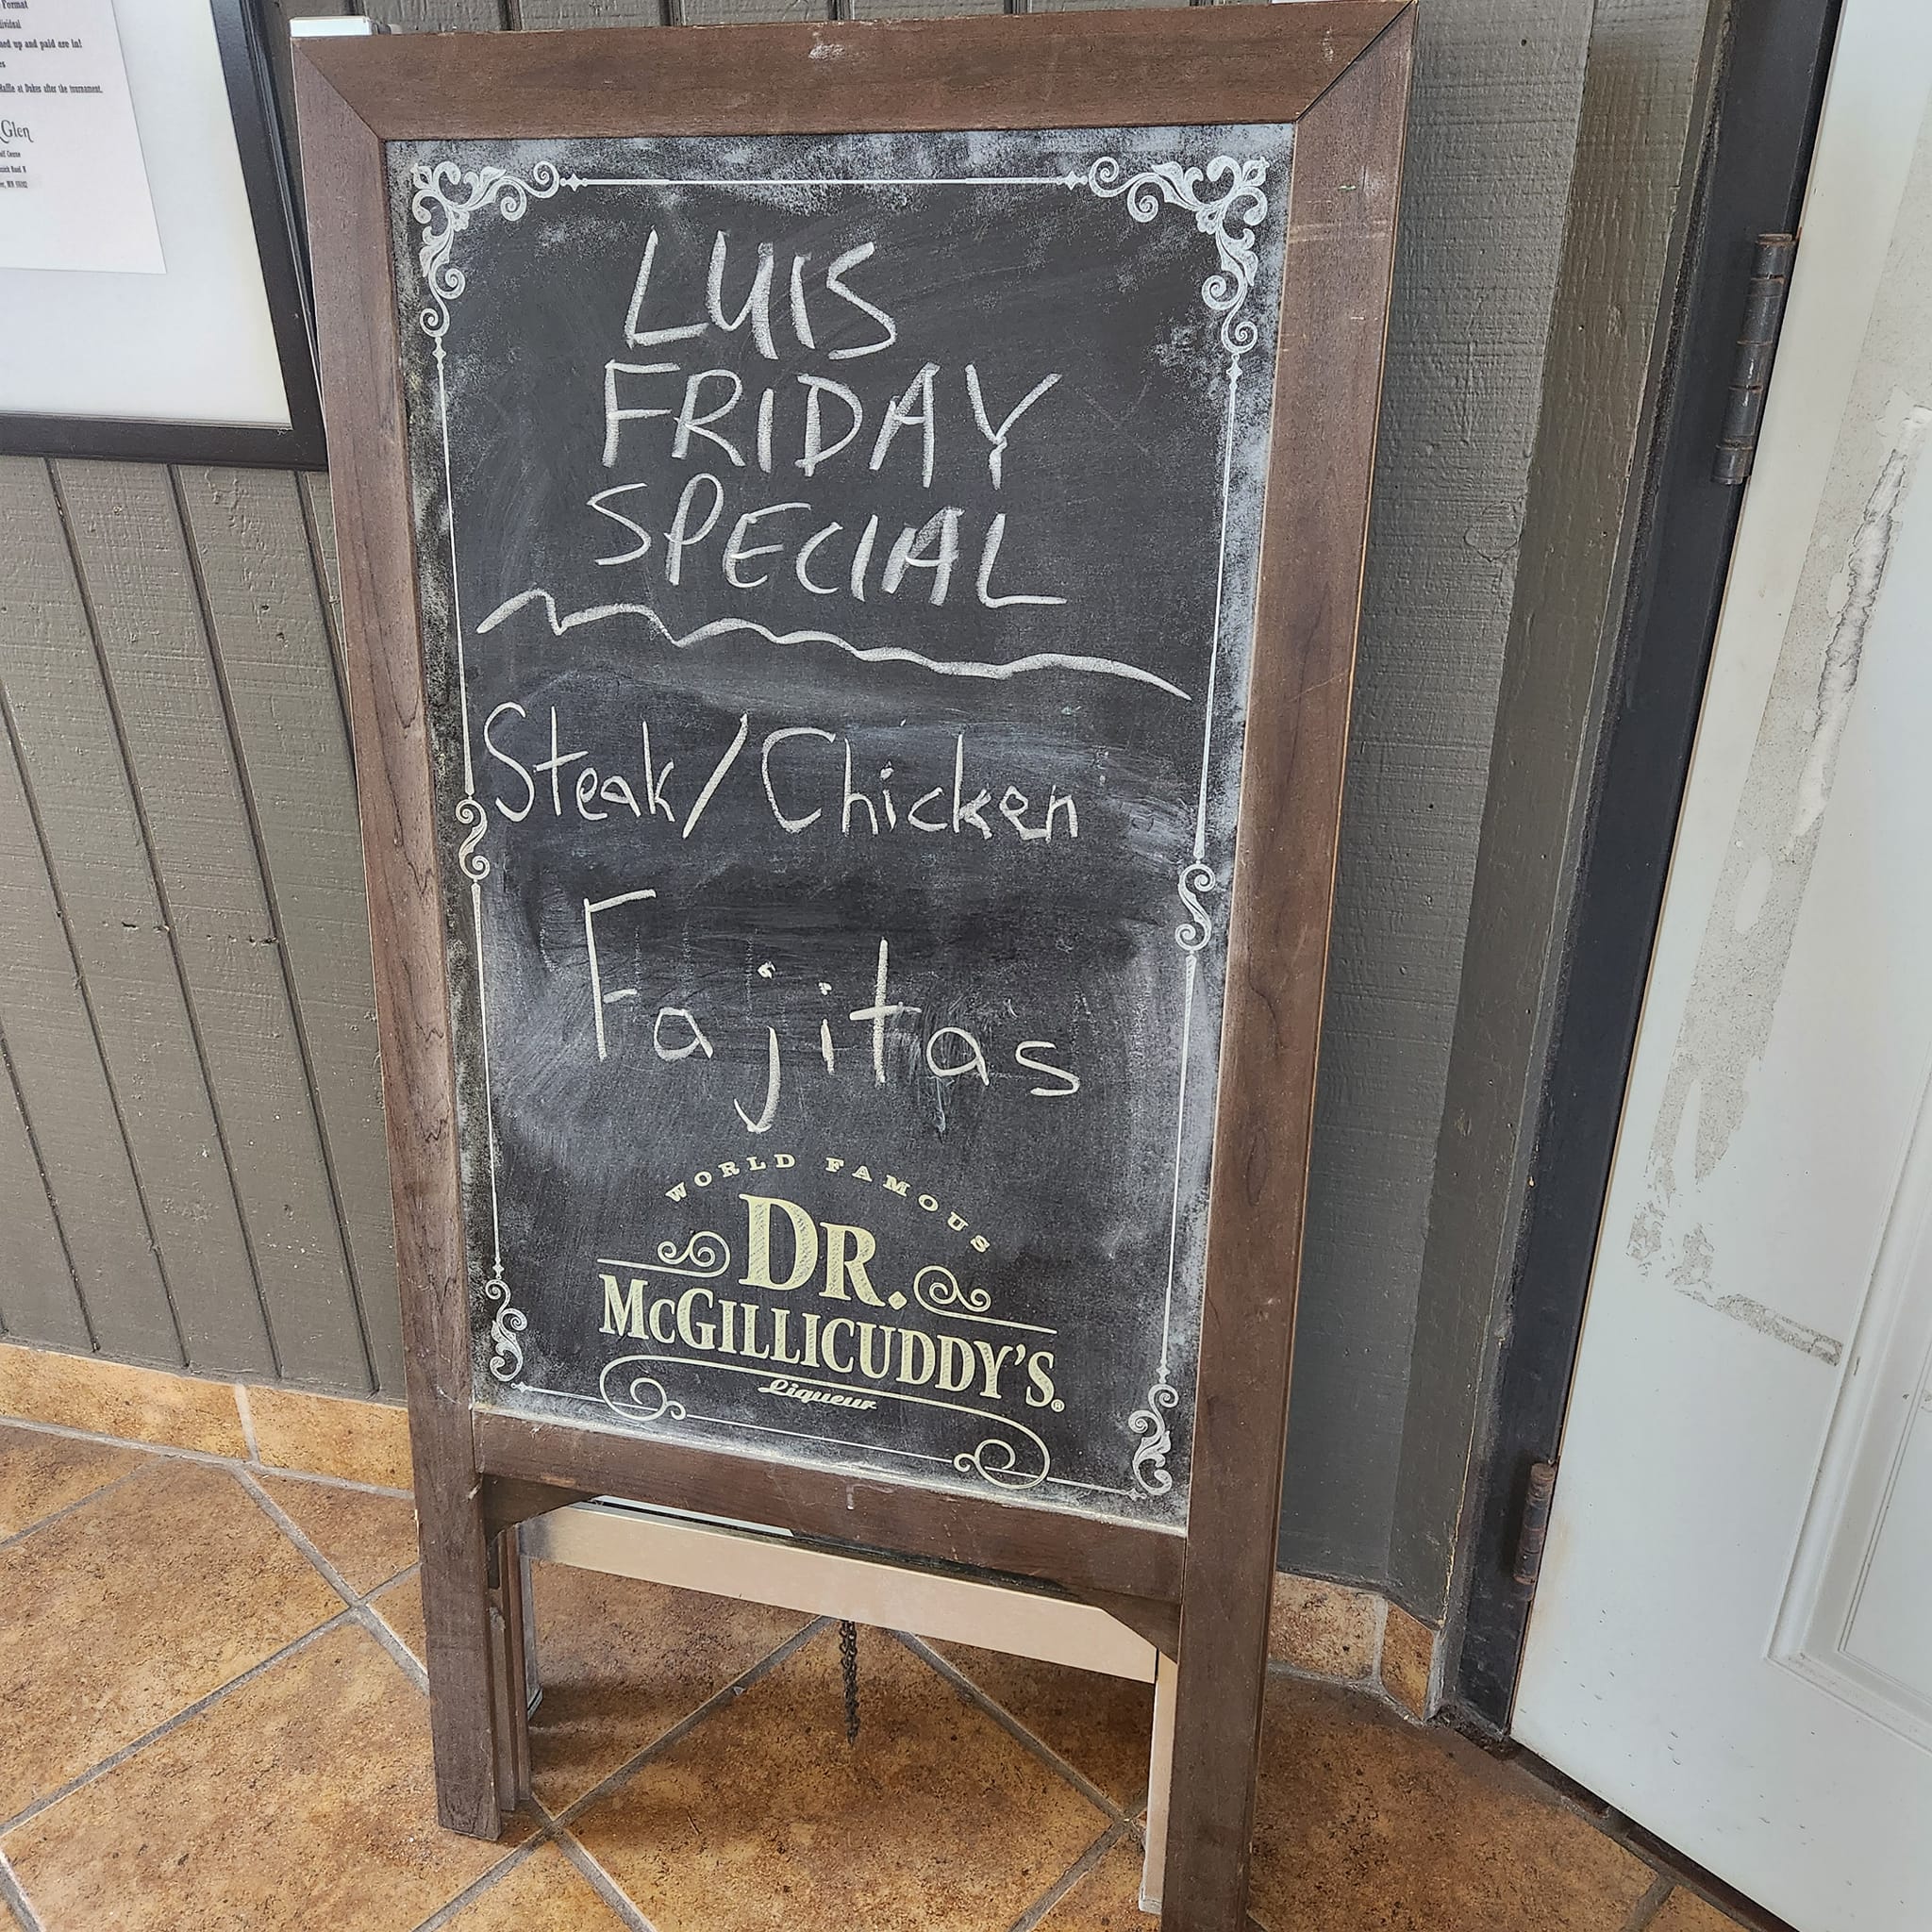 Format
ned up and paid are in!
Raffle at Dukes after the tournament.
Glen
LUIS
FRIDAY
SPECIAL
Steak/Chicken
Fajitas
WORLD FAMOUS
DR.
McGILLICUDDY'S®
Liqueur